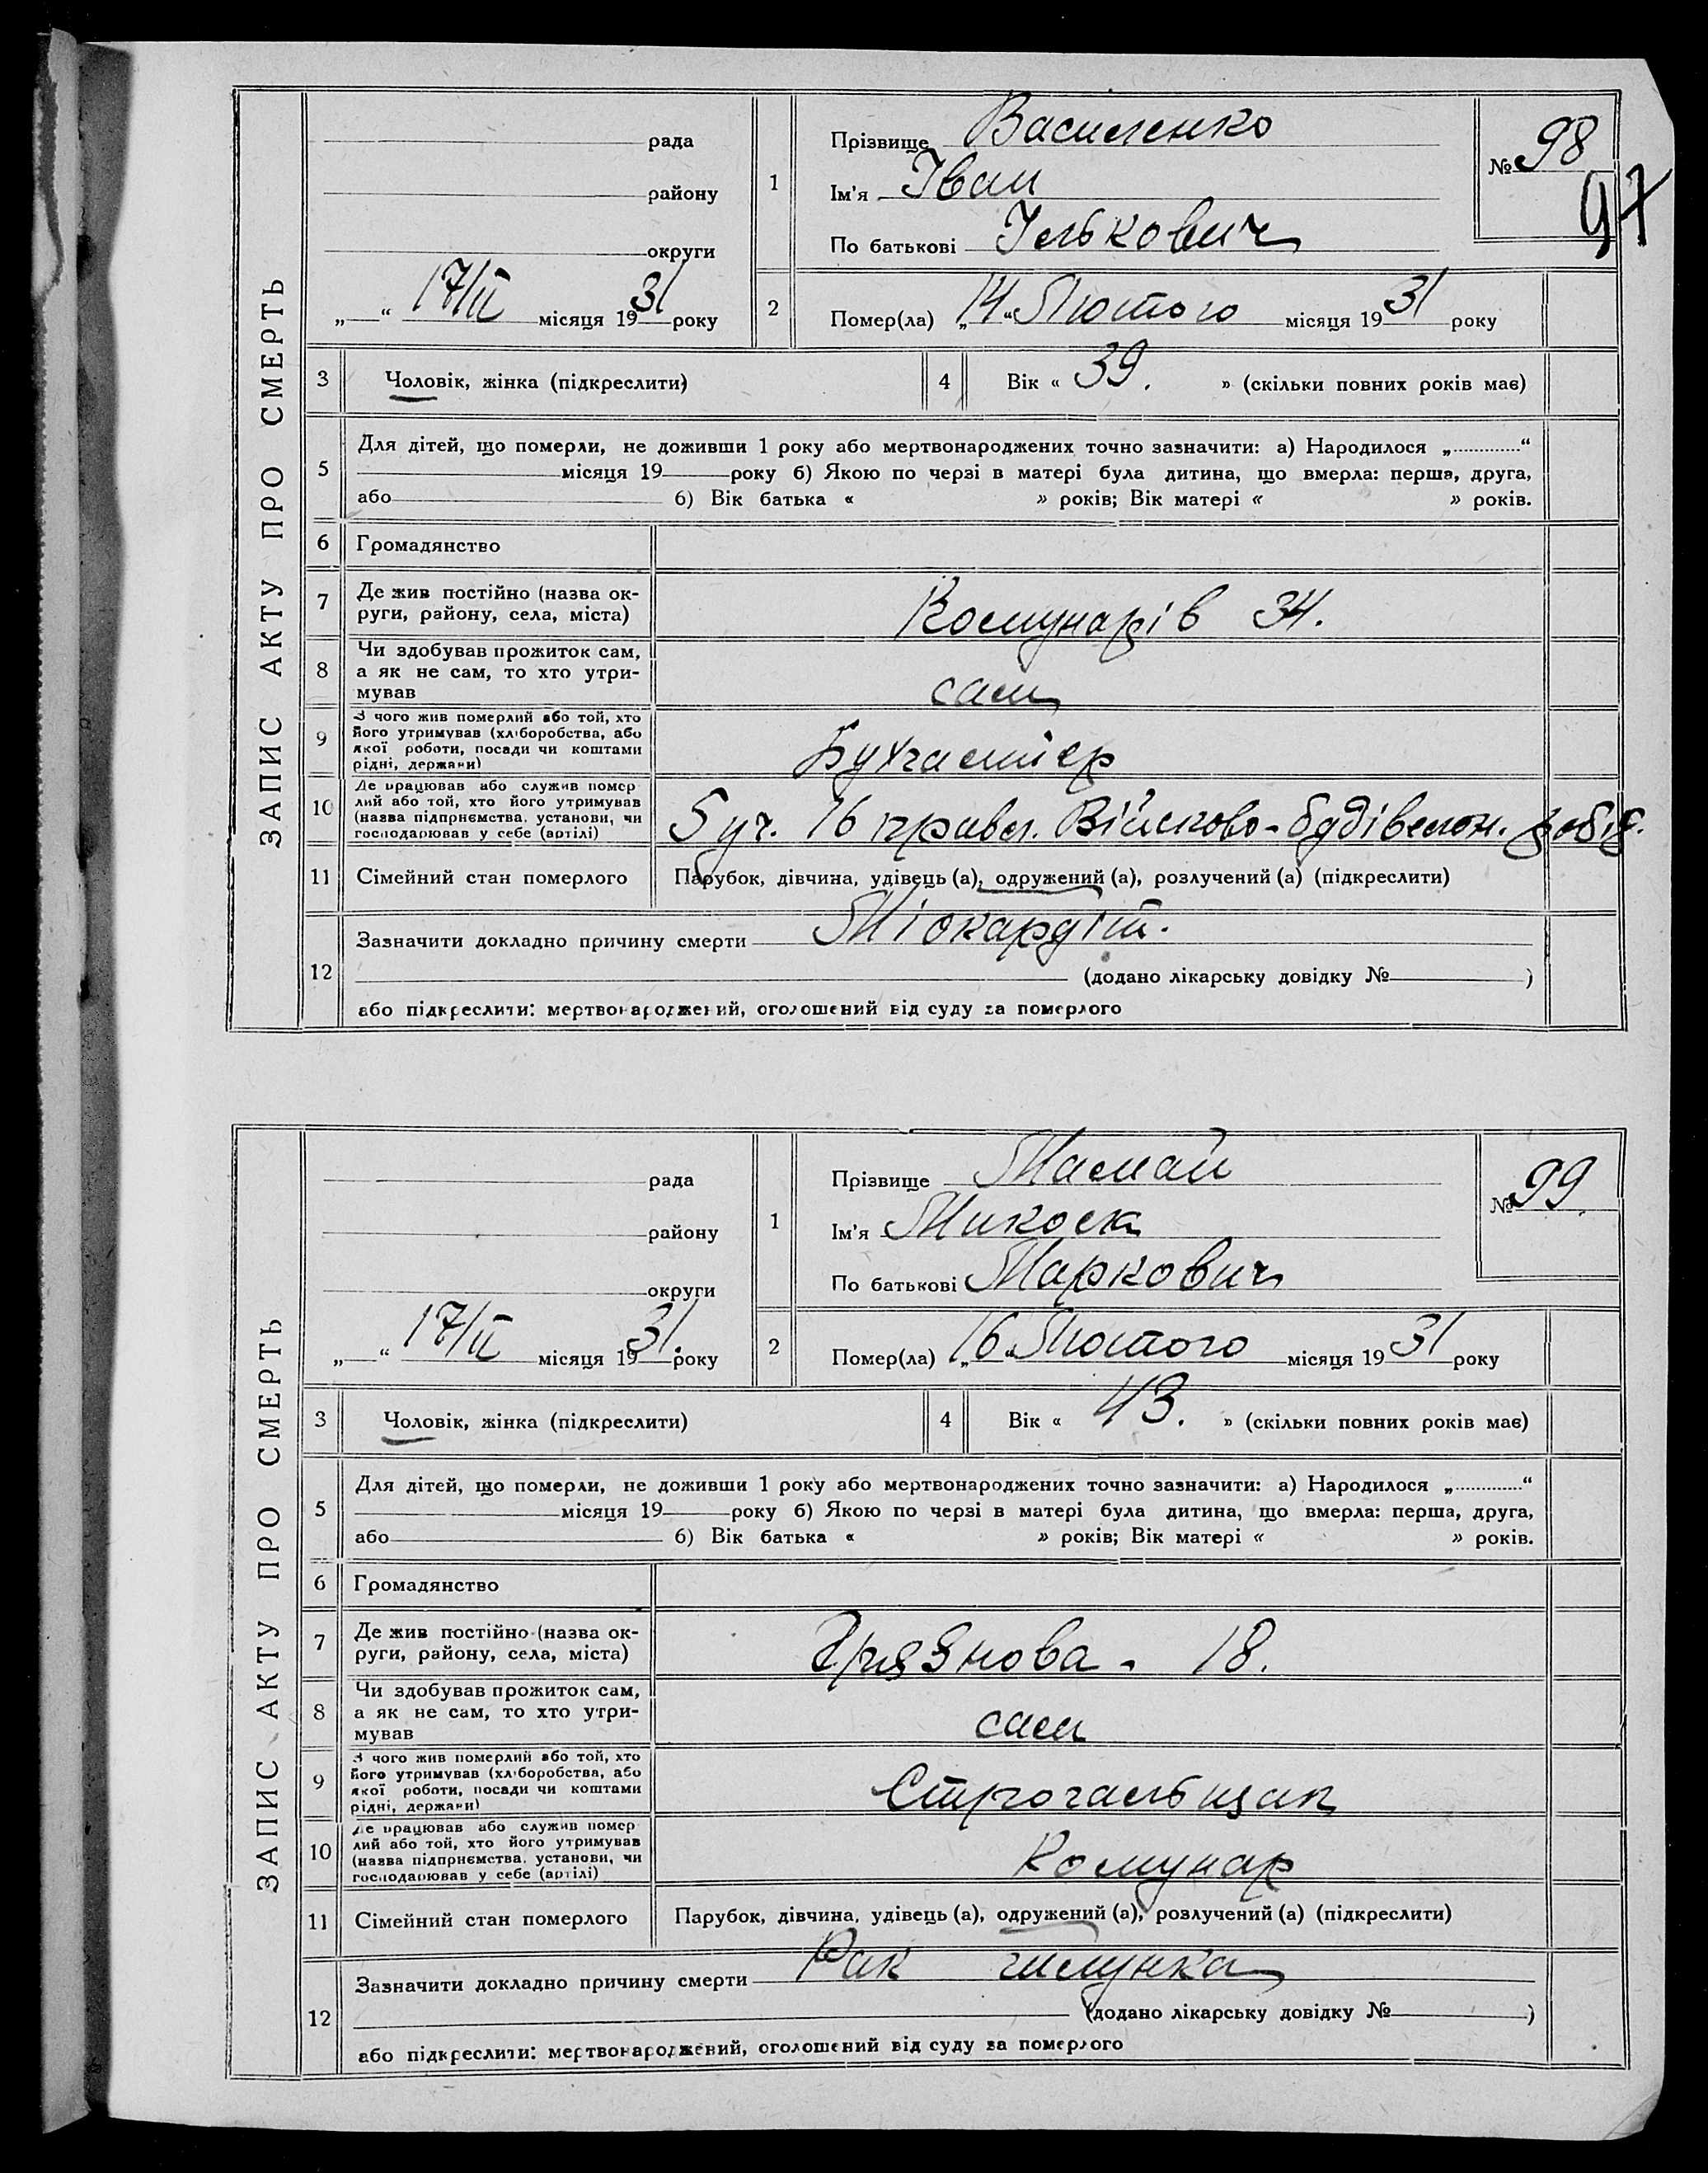 ЗАПИС АКТУ ПРО СМЕРТЬ
рада
району
округи
„ “ 17/II місяця 1931 року
1
Прізвище Василенко
Ім'я Іван
По батькові Ількович
№ 98
97
2
Помер(ла) „14“ Лютого місяця 1931 року
3
Чоловік, жінка (підкреслити)
4
Вік « 39. » (скільки повних років має)
5
Для дітей, що померли, не доживши 1 року або мертвонароджених точно зазначити: а) Народилося „ “
місяця 19 року б) Якою по черзі в матері була дитина, що вмерла: перша, друга,
або б) Вік батька « » років; Вік матері « » років.
6
Громадянство
7
Де жив постійно (назва ок-
руги, району, села, міста)
Комунарів 34.
8
Чи здобував прожиток сам,
а як не сам, то хто утри-
мував
сам
9
З чого жив померлий або той, хто
його утримував (хліборобства, або
якої роботи, посади чи коштами
рідні, держави)
Бухгалтер
10
Де працював або служив помер
лий або той, хто його утримував
(назва підприємства, установи, чи
господарював у себе (артілі)
5 уч. 16 правл. Військово-будівельн. робіт.
11
Сімейний стан померлого
Парубок, дівчина, удівець (а), одружений (а), розлучений (а) (підкреслити)
12
Зазначити докладно причину смерти Міокардіт.
(додано лікарську довідку № )
або підкреслити: мертвонароджений, оголошений від суду за померлого
ЗАПИС АКТУ ПРО СМЕРТЬ
рада
району
округи
„ “ 17/II місяця 1931. року
1
Прізвище Мамай
Ім'я Микола
По батькові Маркович
№ 99
2
Помер(ла) „16“ Лютого місяця 1931 року
3
Чоловік, жінка (підкреслити)
4
Вік « 43. » (скільки повних років має)
5
Для дітей, що померли, не доживши 1 року або мертвонароджених точно зазначити: а) Народилося „ “
місяця 19 року б) Якою по черзі в матері була дитина, що вмерла: перша, друга,
або б) Вік батька « » років; Вік матері « » років.
6
Громадянство
7
Де жив постійно (назва ок-
руги, району, села, міста)
Грязнова - 18.
8
Чи здобував прожиток сам,
а як не сам, то хто утри-
мував
сам
9
З чого жив померлий або той, хто
його утримував (хліборобства, або
якої роботи, посади чи коштами
рідні, держави)
Строгальщик
10
Де працював або служив помер
лий або той, хто його утримував
(назва підприємства, установи, чи
господарював у себе (артілі)
Комунар
11
Сімейний стан померлого
Парубок, дівчина, удівець (а), одружений (а), розлучений (а) (підкреслити)
12
Зазначити докладно причину смерти Рак шлунка
(додано лікарську довідку № )
або підкреслити: мертвонароджений, оголошений від суду за померлого